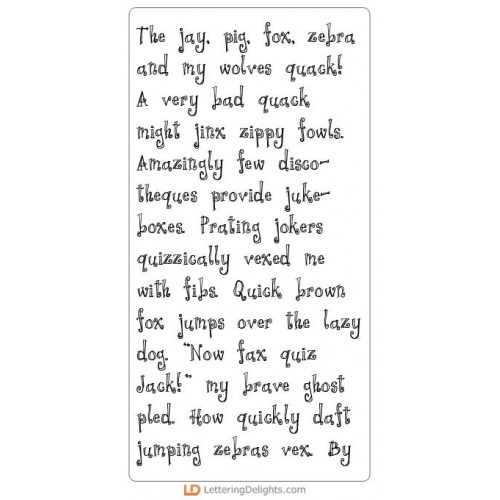 The jay, pig, fox, zebra
and my wolves quack!
A very bad quack
might jinx zippy fowls.
Amazingly few disco-
theques provide juke-
boxes. Prating jokers
quizzically vexed me
with fibs. Quick brown
fox jumps over the lazy
dog. "Now fax quiz
Jack!" my brave ghost
pled. How quickly daft
jumping zebras vex. By
LD LetteringDelights.com